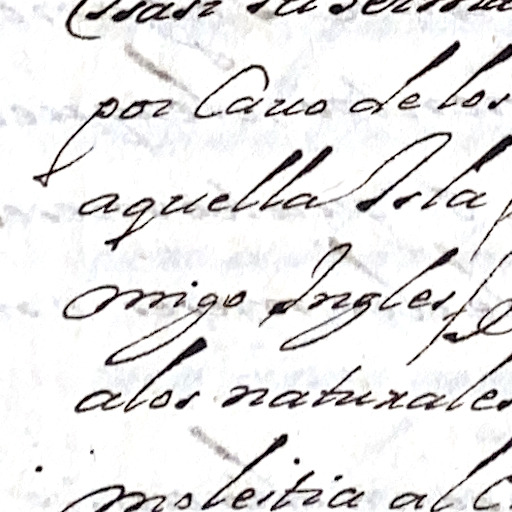 por Cavo de los
aquella Isla
migo Ingles
alos naturales
molestia al